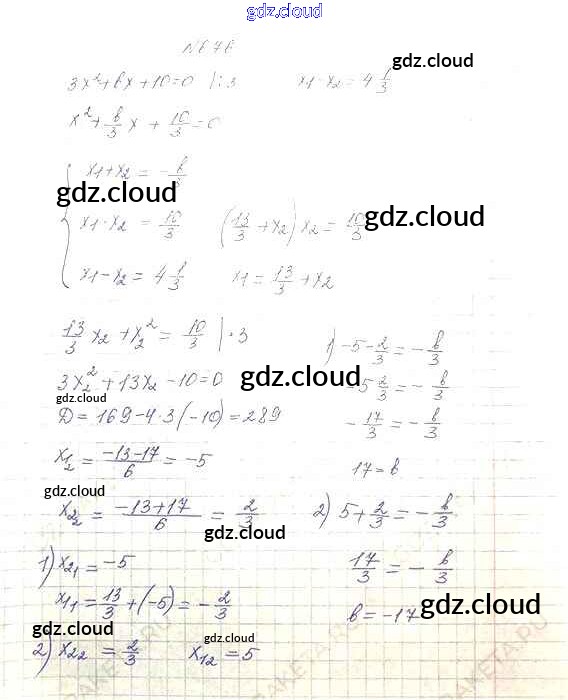 gdz.cloud
N676
gdz.cloud
3x²+bx+10=0 |:3    x1-x2=4 1/3
x²+b/3 x+10/3=0
x1+x2=-b/3
gdz.cloud
x1·x2=10/3    (13/3+x2)x2=10/3
gdz.cloud
x1-x2=4 1/3    x1=13/3+x2
13/3 x2+x2²=10/3 |·3    1) -5-2/3=-b/3
3x2²+13x2-10=0    gdz.cloud    -5 2/3=-b/3
gdz.cloud
D=169-4·3(-10)=289    -17/3=-b/3
x12=(-13-17)/6=-5    17=b
gdz.cloud
x22=(-13+17)/6=2/3    2) 5+2/3=-b/3
gdz.cloud
1) x21=-5    17/3=-b/3
x11=13/3+(-5)=-2/3    b=-17    gdz.cloud
gdz.cloud    gdz.cloud
2) x22=2/3    x12=5